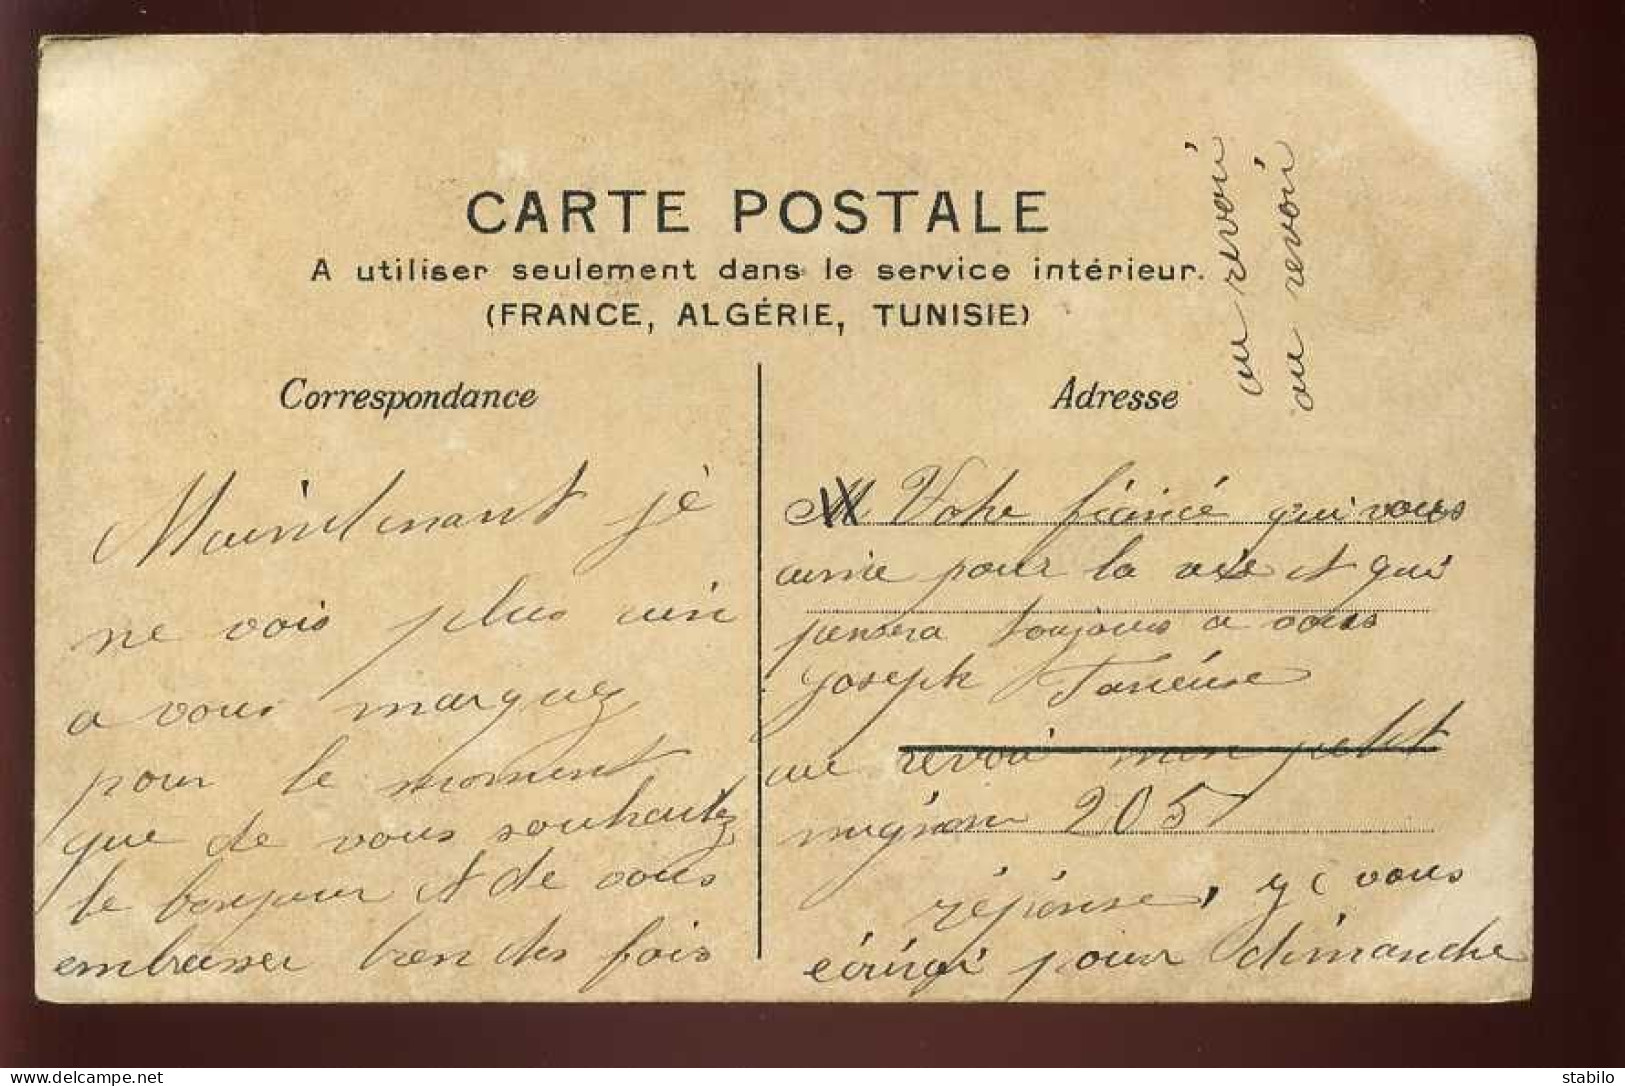 CARTE POSTALE
A utiliser seulement dans le service intérieur.
(FRANCE, ALGÉRIE, TUNISIE)
Correspondance
Maintenant je
ne vois plus rien
a vous marquez
pour le moment
que de vous souhaitez
le bonjour et de vous
embrasser bien des fois
Adresse
au revoir
au revoir
M Votre fiancé qui vous
aime pour la vie et qui
pensera toujours a vous
Joseph
au revoir mon petit
mignon 205
réponse, ye vous
écrirai pour dimanche
stabilo